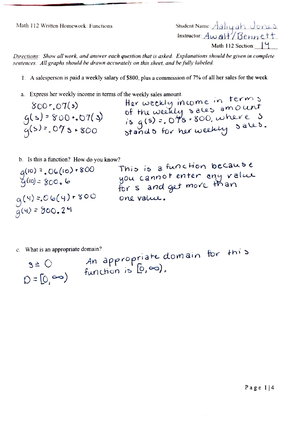 Math 112 Written Homework: Functions
Student Name: Aaliyah Jones
Instructor: Awalt/Bennett
Math 112 Section 14
Directions: Show all work, and answer each question that is asked. Explanations should be given in complete
sentences. All graphs should be drawn accurately on this sheet, and be fully labeled.
1. A salesperson is paid a weekly salary of $800, plus a commission of 7% of all her sales for the week
a. Express her weekly income in terms of the weekly sales amount
800 + .07(s)
g(s) = 800 + .07(s)
g(s) = .07s + 800
Her weekly income in terms
of the weekly sales amount
is g(s) = .07s + 800, where s
stands for her weekly sales.
b. Is this a function? How do you know?
g(10) = .06(10) + 800
g(10) = 800.6
g(4) = .06(4) + 800
g(4) = 800.24
This is a function because
you cannot enter any value
for s and get more than
one value.
c. What is an appropriate domain for this
s ≥ 0
D = [0, ∞)
An appropriate domain for this
function is [0, ∞).
Page 1|4